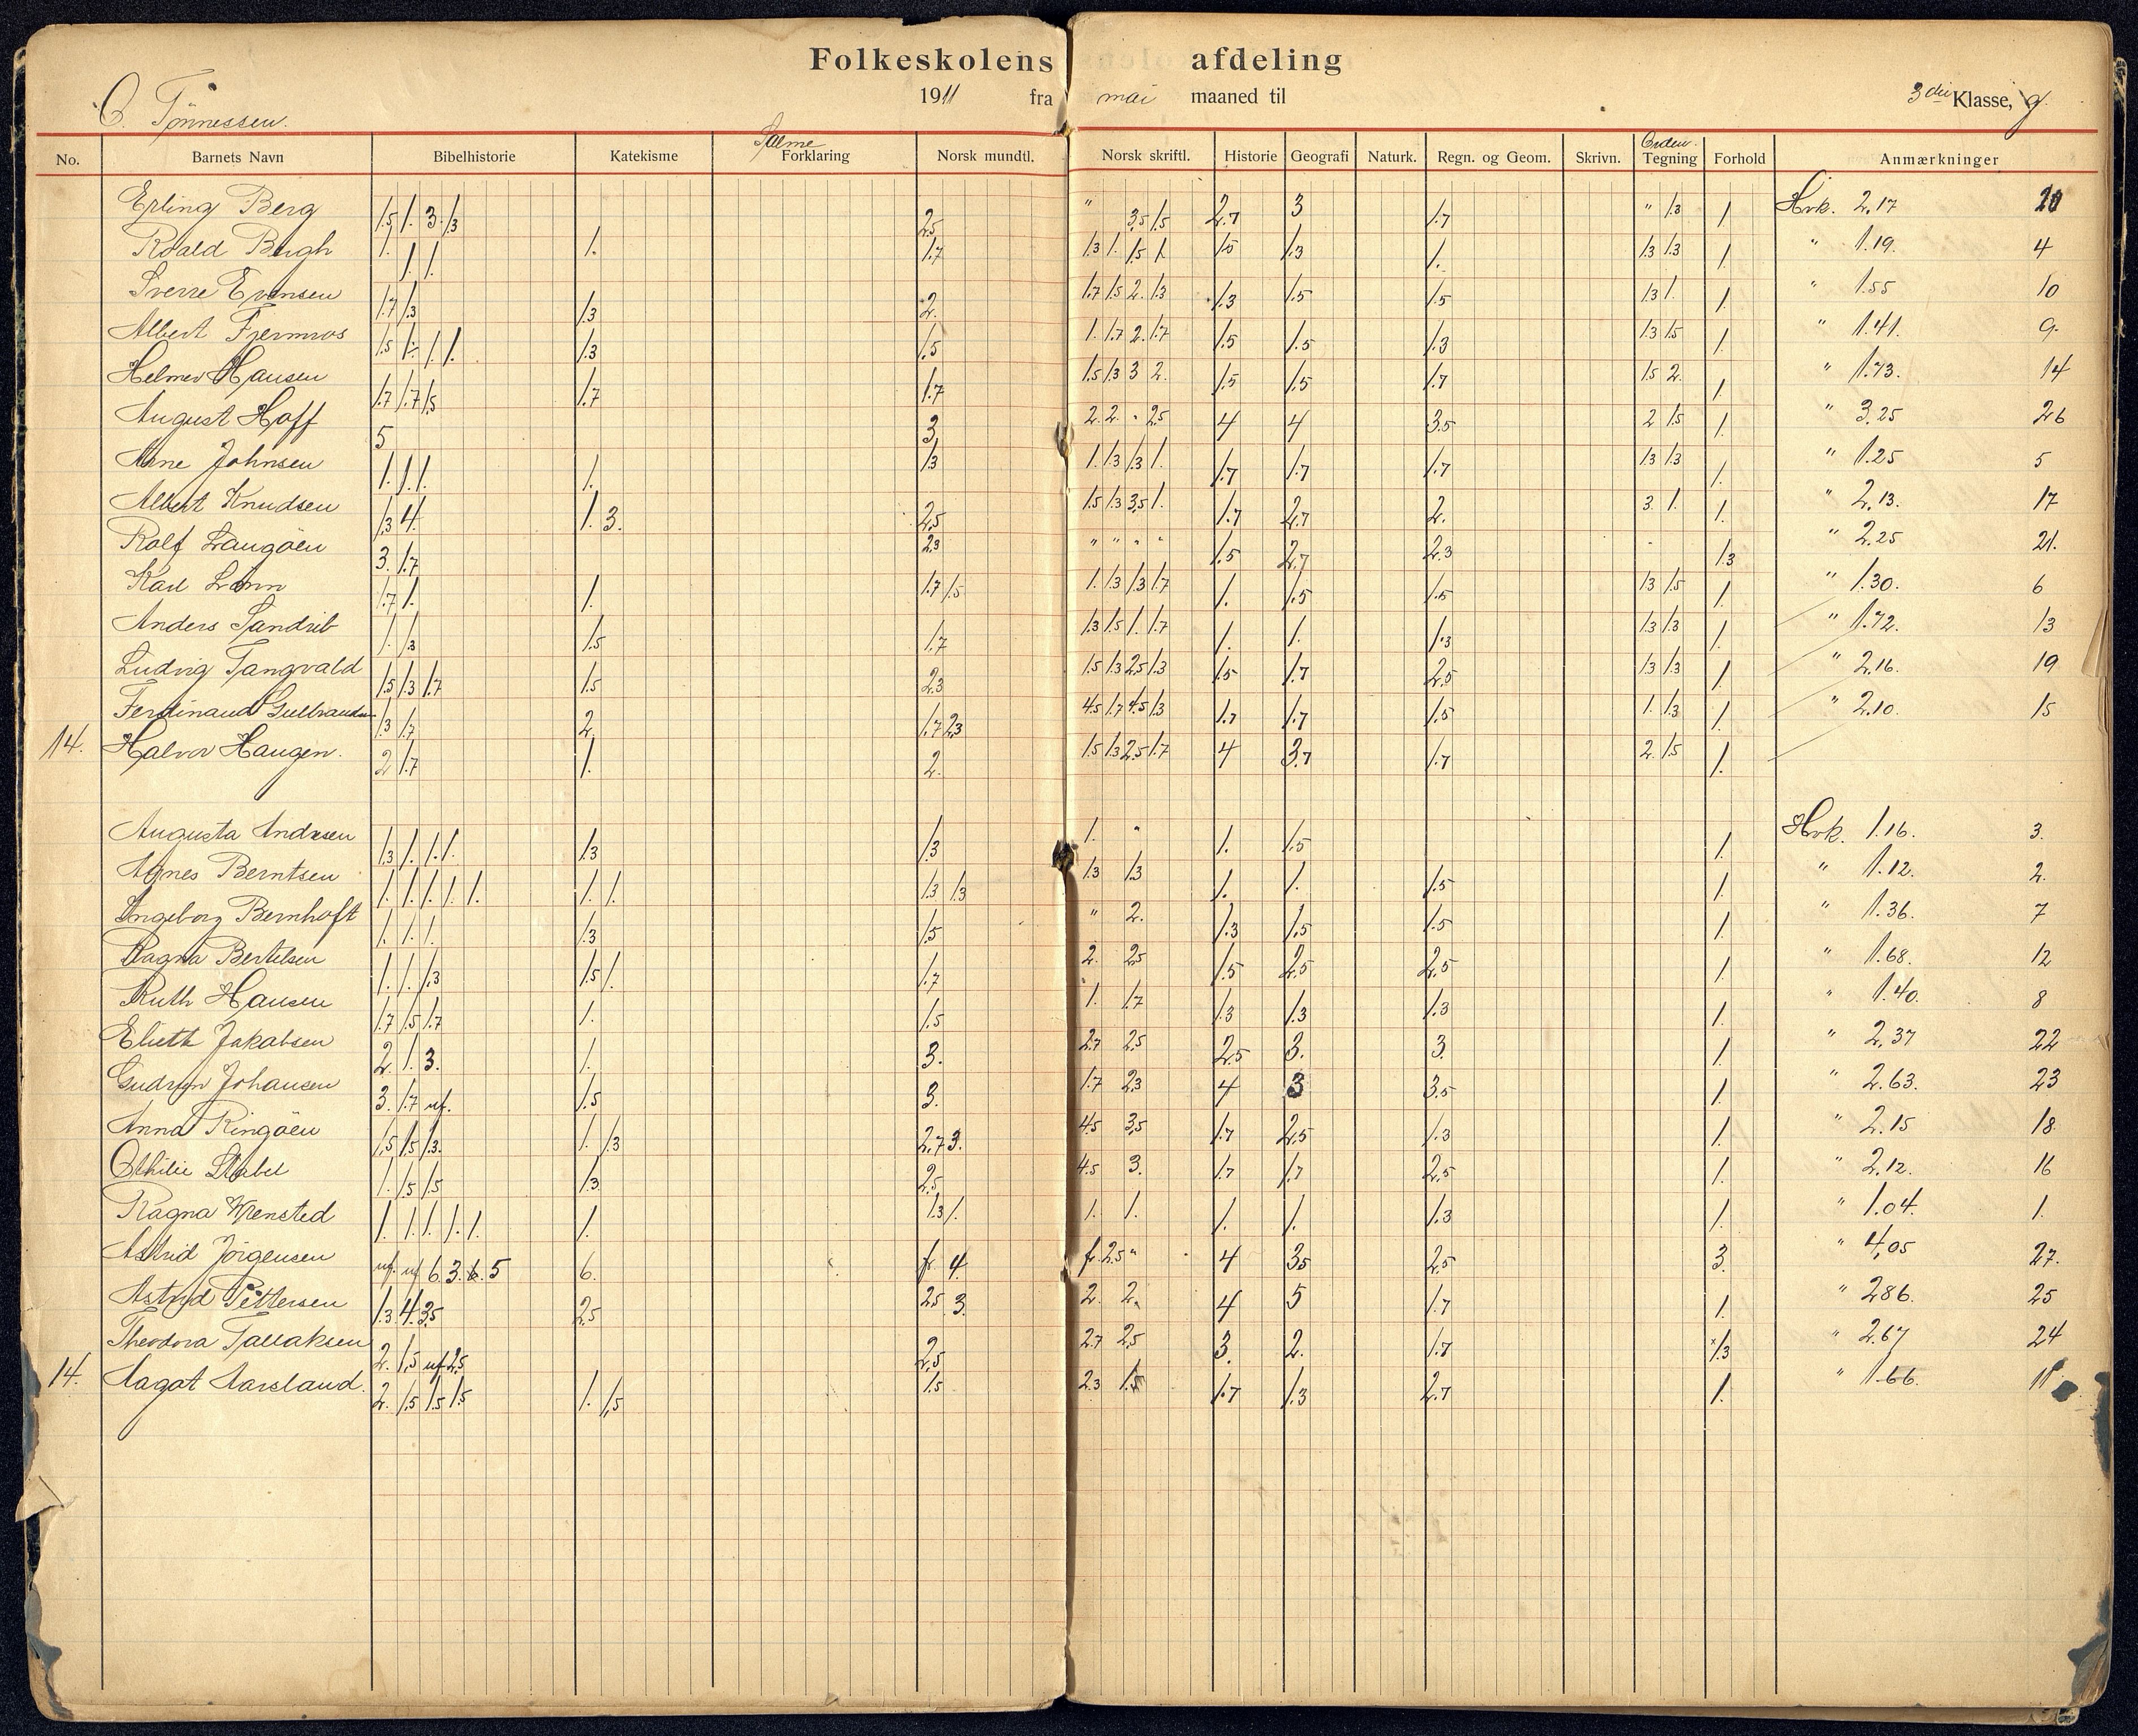 Folkeskolens afdeling
O. Tønnessen. 1911 fra mai maaned til 3die Klasse, g.
No. Barnets Navn Bibelhistorie Katekisme Salme Forklaring Norsk mundtl. Norsk skriftl. Historie Geografi Naturk. Regn. og Geom. Skrivn. Orden. Tegning Forhold Anmærkninger
Erling Berg 1.5 1. 3. 1.3 2.5 " 3.5 1.5 2.7 3 1.7 " 1.3 1. Hvk. 2.17 20
Roald Bergh 1. 1. 1. 1. 1.7 1.3 1. 1.5 1. 1.5 1.3 1. 1.3 1.3 1. " 1.19. 4
Sverre Evensen 1.7 1.3 1.3 2. 1.7 1.5 2. 1.3 1.3 1.5 1.5 1.3 1. 1. " 1.55 10
Albert Fjermros 1.5 1. 1. 1. 1.3 1.5 1. 1.7 2. 1.7 1.5 1.5 1.3 1.3 1.5 1. " 1.41. 9.
Helmer Hansen 1.7 1.7 1.5 1.7 1.7 1.5 1.3 3 2. 1.5 1.5 1.7 1.5 2. 1. " 1.73. 14
August Hoff 5 3. 2. 2. " 2.5 4 4 3.5 2 1.5 1. " 3.25 26
Arne Johnsen 1. 1. 1. 1. 1.3 1. 1.3 1.3 1. 1.7 1.7 1.7 1.3 1.3 1. " 1.25 5
Albert Knudsen 1.3 4. 1. 3. 2.5 1.5 1.3 3.5 1. 1.7 2.7 2. 3. 1. 1. " 2.13. 17
Rolf Langøen 3. 1.7 2.3 " " " " 1.5 2.7 2.3 1.3 " 2.25 21.
Karl Lønn 1.7 1. 1. 1.7 1.5 1. 1.3 1.3 1.7 1. 1.5 1.5 1.3 1.5 1. " 1.30. 6
Anders Sandrib 1. 1.3 1.5 1.7 1.3 1.5 1. 1.7 1. 1. 1.3 1.3 1.3 1. " 1.72. 13
Ludvig Tangvald 1.5 1.3 1.7 1.5 2.3 1.5 1.3 2.5 1.3 1.5 1.7 2.5 1.3 1.3 1. " 2.16. 19
Ferdinand Gulbrandsen 1.3 1.7 2. 1.7 2.3 4.5 1.7 4.5 1.3 1.7 1.7 1.5 1. 1.3 1. " 2.10. 15
14. Halvor Haugen. 2 1.7 1. 2. 1.5 1.3 2.5 1.7 4 3.7 1.7 2. 1.5 1.
Augusta Andresen 1.3 1. 1. 1. 1.3 1.3 1. " 1. 1.5 1. Hvk. 1.16. 3.
Agnes Berntsen 1. 1. 1. 1. 1. 1. 1. 1.3 1.3 1.3 1.3 1. 1. 1.5 1. " 1.12. 2.
Ingeborg Bernhoft 1. 1. 1. 1.3 1.5 " 2. 1.3 1.5 1.5 1. " 1.36. 7
Ragna Bertelsen 1. 1. 1.3 1.5 1. 1.7 2. 2.5 1.5 2.5 2.5 1. " 1.68. 12
Ruth Hansen 1.7 1.5 1.7 1. 1.5 1. 1.7 1.3 1.3 1.3 1. " 1.40. 8
Elieth Jakobsen 2. 1. 3. 1. 3. 2.7 2.5 2.5 3. 3. 1. " 2.37 22
Gudrun Johansen 3. 1.7 uf. 1.5 3. 1.7 2.3 4 3 3.5 1. " 2.63. 23
Anna Ringøen 1.5 1.5 1.3. 1. 1.3 2.7 3. 4.5 3.5 1.7 2.5 1.3 1. " 2.15 18.
Othilie Stabel 1. 1.5 1.5 1.3 2.5 4.5 3. 1.7 1.7 2.5 1. " 2.12. 16
Ragna Wrensted 1. 1. 1. 1. 1. 1. 1.3 1. 1. 1. 1. 1. 1.3 1. " 1.04. 1.
Astrid Jørgensen uf. uf 6. 3. 6. 5 6. fr. 4. fr. 2.5 " 4 3.5 2.5 3. " 4,05 27.
Astrid Pettersen 1.3 4. 3.5 2.5 2.5 3. 2. 2. 4 5 1.7 1. " 2.86. 25
Theodora Tallaksen 2. 1.5 uf. 2.5 2.5 2.7 2.5 3. 2. 1.7 x1.3 " 2.67 24
14. Aagot Aarsland. 2. 1.5 1.5 1.5 1. 1.5 1.5 2.3 1.5 1.7 1.3 2.7 1. " 1.66. 11